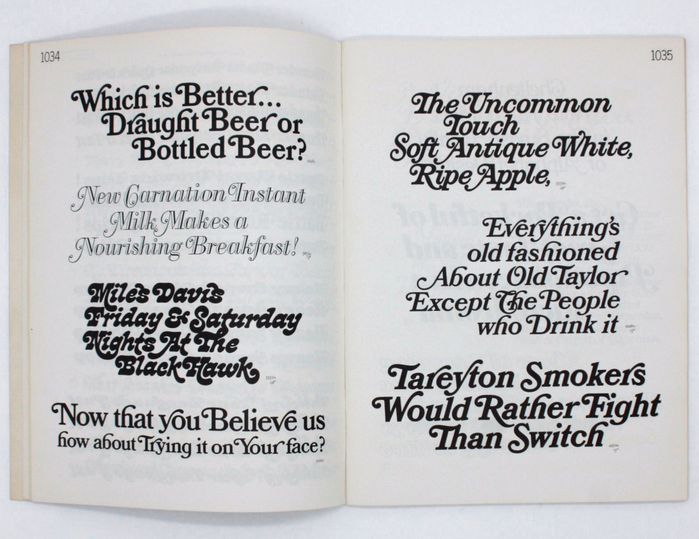 1034
Which is Better...
Draught Beer or
Bottled Beer?
New Carnation Instant
Milk Makes a
Nourishing Breakfast!
Miles Davis
Friday & Saturday
Nights At The
Black Hawk
Now that you Believe us
how about Trying it on Your face?
1035
The Uncommon
Touch
Soft Antique White,
Ripe Apple,
Everything's
old fashioned
About Old Taylor
Except The People
who Drink it
Tareyton Smokers
Would Rather Fight
Than Switch